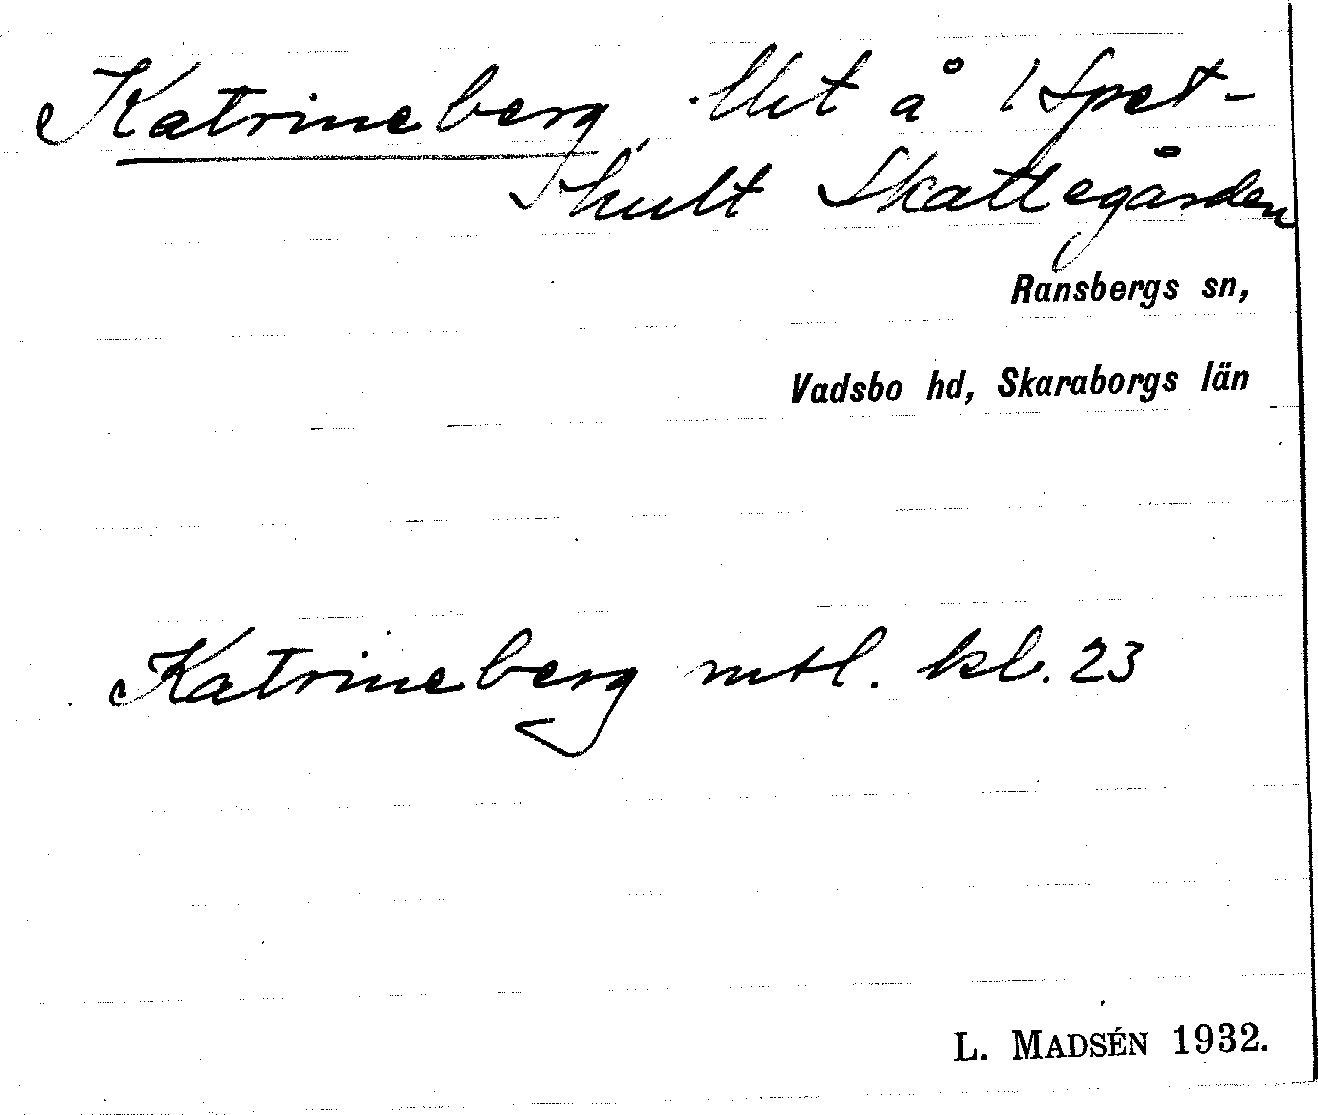 Katrineberg, Utt å 1 Spet-
hult Skattegården
Ransbergs sn,
Vadsbo hd, Skaraborgs län
Katrineberg mtl. kl. 23
L. MADSÉN 1932.